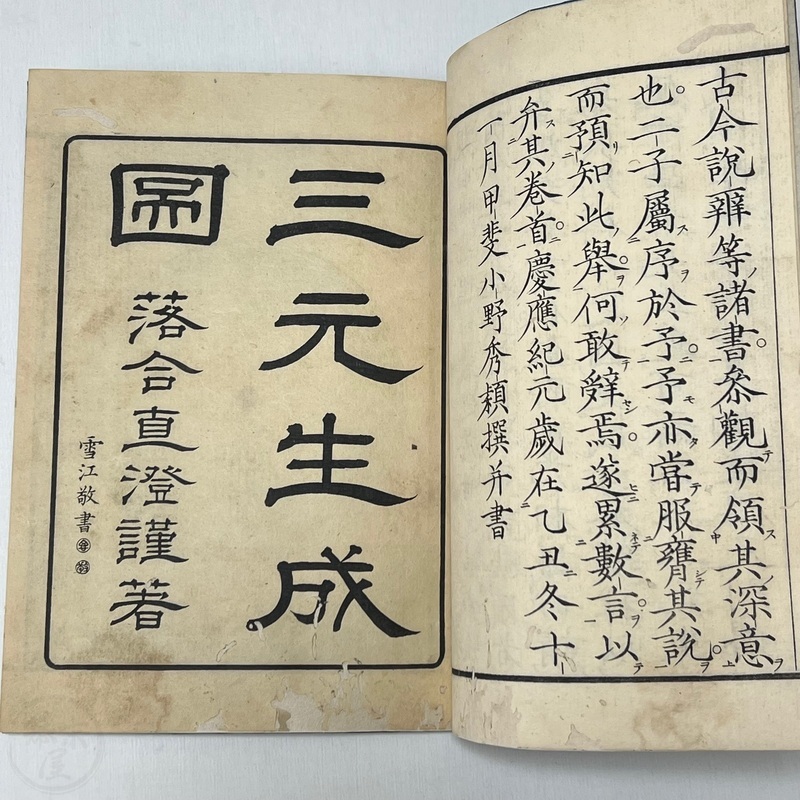 古今說辨等諸書。叅觀而領其深意
也。二子屬序於予。予亦當服膺其說
而預知此舉。何敢辭焉。遂累數言。以
弁其卷首。慶應紀元歲在乙丑冬十
一月甲斐小野秀穎撰并書
三元生成
圖 落合直澄謹著
雪江敬書